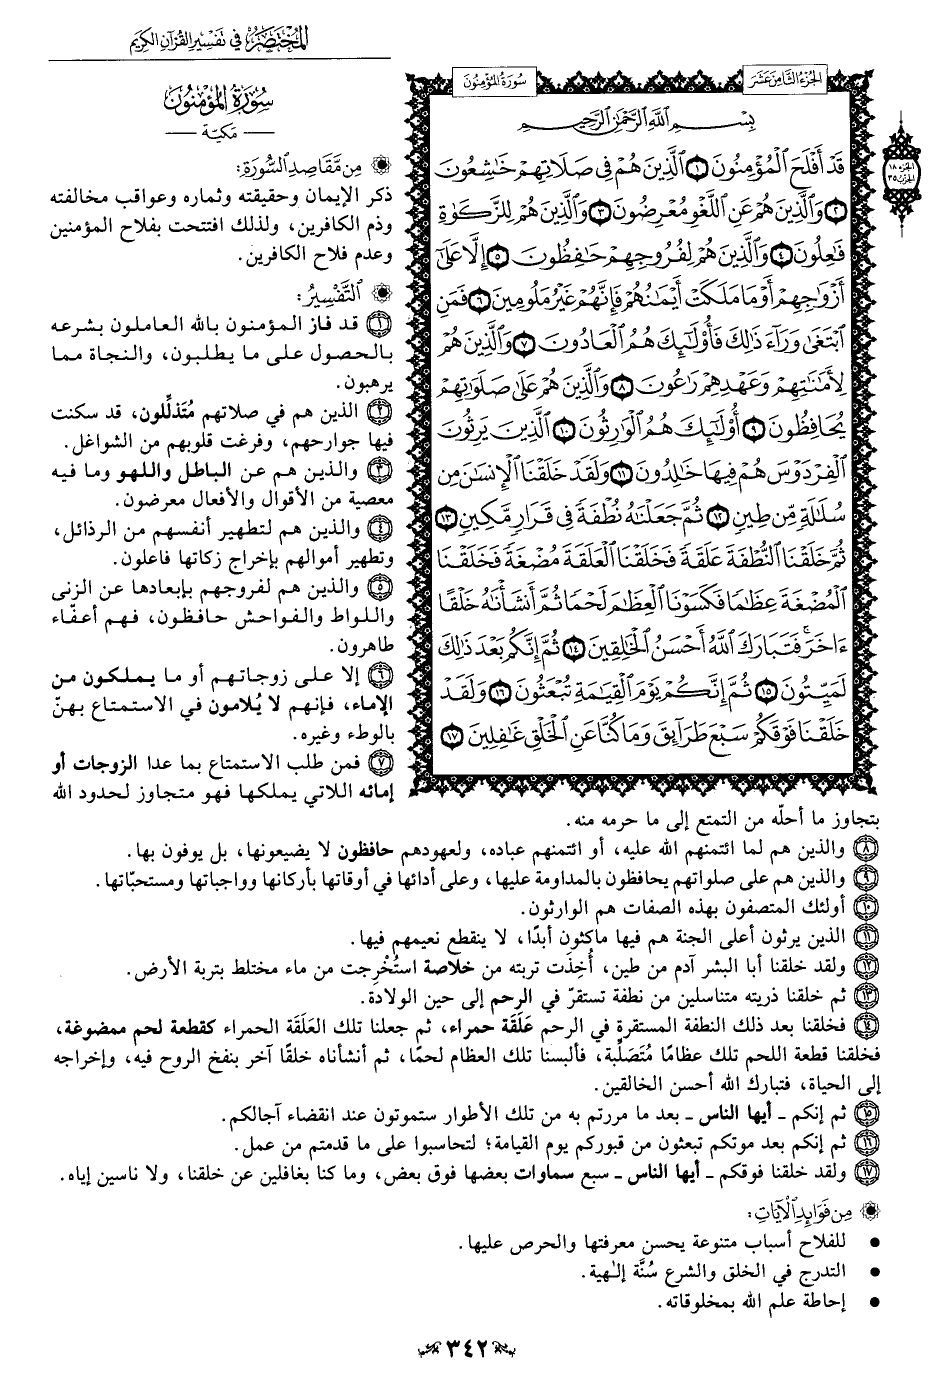 المختصر في تفسير القرآن الكريم
الجزء الثامن عشر
سورة المؤمنون
الجزء ١٨
الحزب ٣٥
بِسْمِ ٱللَّهِ ٱلرَّحْمَٰنِ ٱلرَّحِيمِ
قَدْ أَفْلَحَ ٱلْمُؤْمِنُونَ ١ ٱلَّذِينَ هُمْ فِى صَلَاتِهِمْ خَٰشِعُونَ
٢ وَٱلَّذِينَ هُمْ عَنِ ٱللَّغْوِ مُعْرِضُونَ ٣ وَٱلَّذِينَ هُمْ لِلزَّكَوٰةِ
فَٰعِلُونَ ٤ وَٱلَّذِينَ هُمْ لِفُرُوجِهِمْ حَٰفِظُونَ ٥ إِلَّا عَلَىٰٓ
أَزْوَٰجِهِمْ أَوْ مَا مَلَكَتْ أَيْمَٰنُهُمْ فَإِنَّهُمْ غَيْرُ مَلُومِينَ ٦ فَمَنِ
ٱبْتَغَىٰ وَرَآءَ ذَٰلِكَ فَأُو۟لَٰٓئِكَ هُمُ ٱلْعَادُونَ ٧ وَٱلَّذِينَ هُمْ
لِأَمَٰنَٰتِهِمْ وَعَهْدِهِمْ رَٰعُونَ ٨ وَٱلَّذِينَ هُمْ عَلَىٰ صَلَوَٰتِهِمْ
يُحَافِظُونَ ٩ أُو۟لَٰٓئِكَ هُمُ ٱلْوَٰرِثُونَ ١٠ ٱلَّذِينَ يَرِثُونَ
ٱلْفِرْدَوْسَ هُمْ فِيهَا خَٰلِدُونَ ١١ وَلَقَدْ خَلَقْنَا ٱلْإِنسَٰنَ مِن
سُلَٰلَةٍ مِّن طِينٍ ١٢ ثُمَّ جَعَلْنَٰهُ نُطْفَةً فِى قَرَارٍ مَّكِينٍ ١٣
ثُمَّ خَلَقْنَا ٱلنُّطْفَةَ عَلَقَةً فَخَلَقْنَا ٱلْعَلَقَةَ مُضْغَةً فَخَلَقْنَا
ٱلْمُضْغَةَ عِظَٰمًا فَكَسَوْنَا ٱلْعِظَٰمَ لَحْمًا ثُمَّ أَنشَأْنَٰهُ خَلْقًا
ءَاخَرَ ۚ فَتَبَارَكَ ٱللَّهُ أَحْسَنُ ٱلْخَٰلِقِينَ ١٤ ثُمَّ إِنَّكُم بَعْدَ ذَٰلِكَ
لَمَيِّتُونَ ١٥ ثُمَّ إِنَّكُمْ يَوْمَ ٱلْقِيَٰمَةِ تُبْعَثُونَ ١٦ وَلَقَدْ
خَلَقْنَا فَوْقَكُمْ سَبْعَ طَرَآئِقَ وَمَا كُنَّا عَنِ ٱلْخَلْقِ غَٰفِلِينَ ١٧
سورة المؤمنون
— مكية —
من مقاصد السورة:
ذكر الإيمان وحقيقته وثماره وعواقب مخالفته
وذم الكافرين، ولذلك افتتحت بفلاح المؤمنين
وعدم فلاح الكافرين.
التفسير:
١ قد فاز المؤمنون بالله العاملون بشرعه
بالحصول على ما يطلبون، والنجاة مما
يرهبون.
٢ الذين هم في صلاتهم مُتَذلِّلون، قد سكنت
فيها جوارحهم، وفرغت قلوبهم من الشواغل.
٣ والذين هم عن الباطل واللهو وما فيه
معصية من الأقوال والأفعال معرضون.
٤ والذين هم لتطهير أنفسهم من الرذائل،
وتطهير أموالهم بإخراج زكاتها فاعلون.
٥ والذين هم لفروجهم بإبعادها عن الزنى
واللواط والفواحش حافظون، فهم أعفّاء
طاهرون.
٦ إلا على زوجاتهم أو ما يملكون من
الإماء، فإنهم لا يُلامون في الاستمتاع بهنّ
بالوطء وغيره.
٧ فمن طلب الاستمتاع بما عدا الزوجات أو
إمائه اللاتي يملكها فهو متجاوز لحدود الله
بتجاوز ما أحلّه من التمتع إلى ما حرمه منه.
٨ والذين هم لما ائتمنهم الله عليه، أو ائتمنهم عباده، ولعهودهم حافظون لا يضيعونها، بل يوفون بها.
٩ والذين هم على صلواتهم يحافظون بالمداومة عليها، وعلى أدائها في أوقاتها بأركانها وواجباتها ومستحبّاتها.
١٠ أولئك المتصفون بهذه الصفات هم الوارثون.
١١ الذين يرثون أعلى الجنة هم فيها ماكثون أبدًا، لا ينقطع نعيمهم فيها.
١٢ ولقد خلقنا أبا البشر آدم من طين، أُخِذَت تربته من خلاصة استُخْرِجت من ماء مختلط بتربة الأرض.
١٣ ثم خلقنا ذريته متناسلين من نطفة تستقرّ في الرحم إلى حين الولادة.
١٤ فخلقنا بعد ذلك النطفة المستقرة في الرحم عَلَقَة حمراء، ثم جعلنا تلك العَلَقَة الحمراء كقطعة لحم ممضوغة،
فخلقنا قطعة اللحم تلك عظامًا مُتَصَلِّبة، فألبسنا تلك العظام لحمًا، ثم أنشأناه خلقًا آخر بنفخ الروح فيه، وإخراجه
إلى الحياة، فتبارك الله أحسن الخالقين.
١٥ ثم إنكم ـ أيها الناس ـ بعد ما مررتم به من تلك الأطوار ستموتون عند انقضاء آجالكم.
١٦ ثم إنكم بعد موتكم تبعثون من قبوركم يوم القيامة؛ لتحاسبوا على ما قدمتم من عمل.
١٧ ولقد خلقنا فوقكم ـ أيها الناس ـ سبع سماوات بعضها فوق بعض، وما كنا بغافلين عن خلقنا، ولا ناسين إياه.
من فوائد الآيات:
• للفلاح أسباب متنوعة يحسن معرفتها والحرص عليها.
• التدرج في الخلق والشرع سُنَّة إلٰهية.
• إحاطة علم الله بمخلوقاته.
٣٤٢